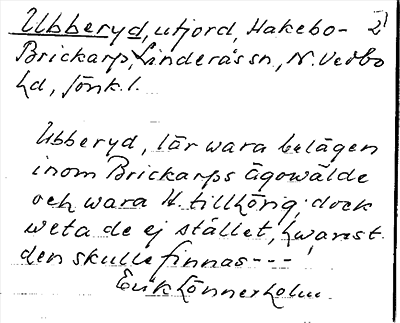 Ubberyd, utjord, Hakebo- 21
Brickarp, Linderås sn, N. Vedbo
hd, Jönk. l.
Ubberyd, lär wara belägen
inom Brickarps ägowälde
och wara H. tillhörig; dock
weta de ej stället, hwarest
den skulle finnas ---
Erik Lönnerholm.